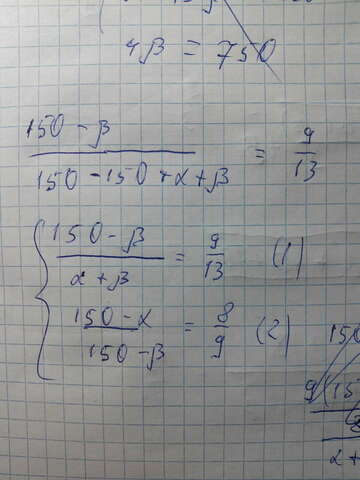 4β = 750
150 - β / 150 - 150 + α + β = 9/13
150 - β / α + β = 9/13 (1)
150 - α / 150 - β = 8/9 (2)
150
9(15
α +